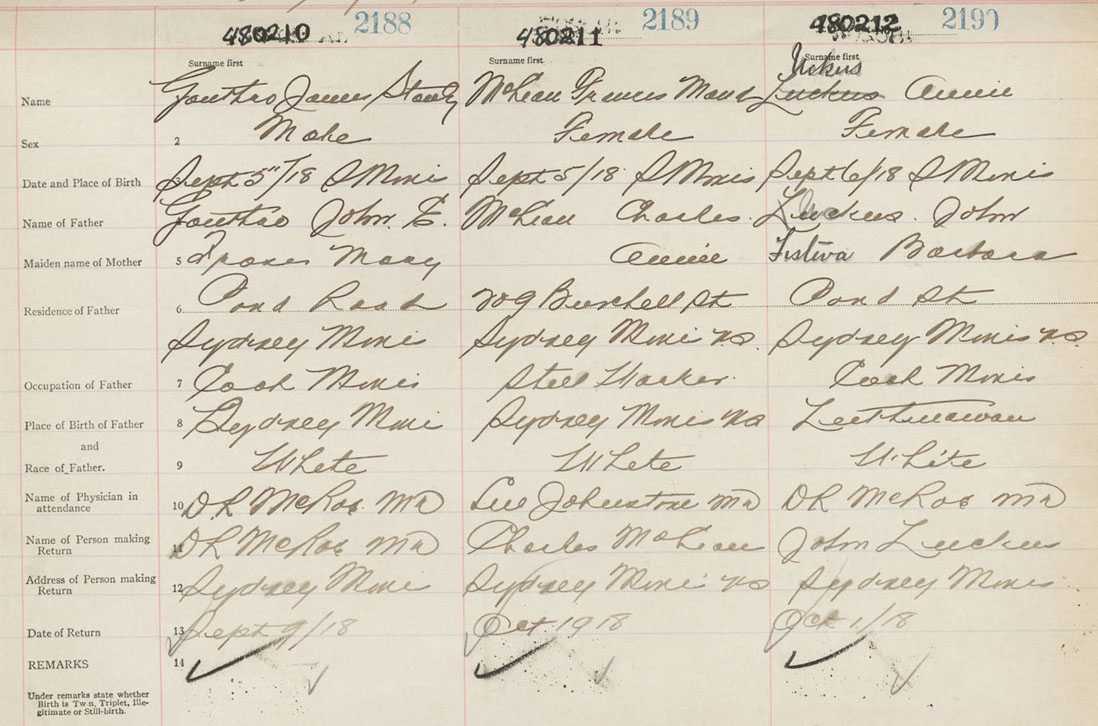 2188 2189 2190
480210 480211 480212
Surname first Surname first Surname first
Name Gouthro James Stanly McLean Frances Maud Luckus Annie
Sex 2 Male Female Female
Date and Place of Birth 3 Sept 5"/18 S Mines Sept 5/18 S Mines Sept 6/18 S Mines
Name of Father Gouthro John. E. McLean Charles. Luckus. John
Maiden name of Mother 5 Fraser Mary Annie Festiva Barbara
Residence of Father 6 Pond Road Burchell St Pond St
Sydney Mines Sydney Mines NS. Sydney Mines NS.
Occupation of Father 7 Coal Miner Steel Worker. Coal Miner
Place of Birth of Father 8 Sydney Mines Sydney Mines NS
and
Race of Father. 9 White White White
Name of Physician in
attendance 10 DR McRae MD Johnstone MD DR McRae MD
Name of Person making
Return 11 DR McRae MD Charles McLean John Luckus
Address of Person making
Return 12 Sydney Mines Sydney Mines NS Sydney Mines
Date of Return 13 Sept 9/18 Oct 1918 Oct 1/18
REMARKS 14
Under remarks state whether
Birth is Twin, Triplet, Ille-
gitimate or Still-birth.